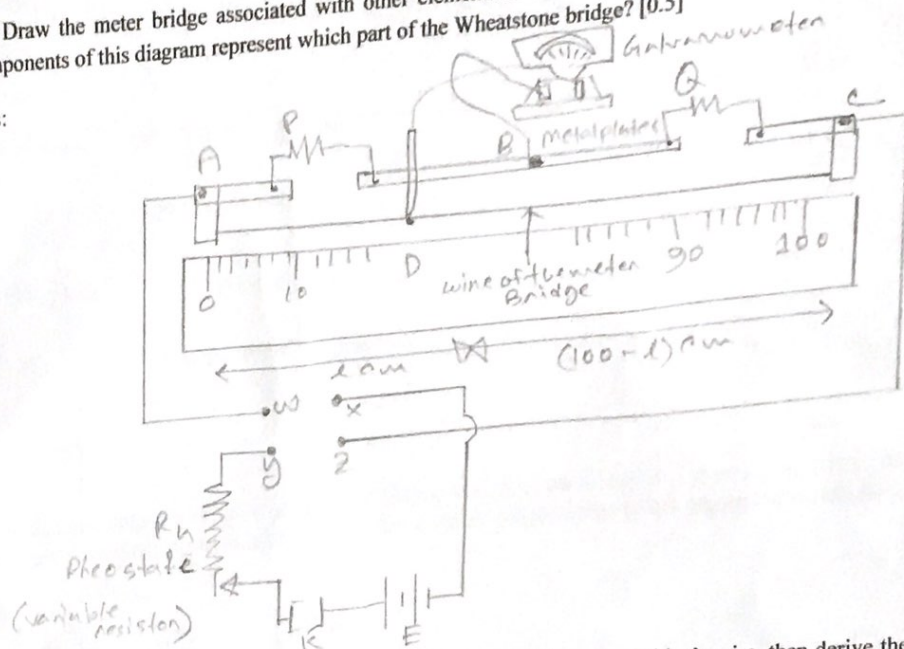 Draw the meter bridge associated with other
ponents of this diagram represent which part of the Wheatstone bridge? [0.5]
:
Galvanometer
P
Q
C
A
B
metalplates
D
0
10
90
100
wire of the meter
Bridge
l cm
(100-l) cm
w
x
y
z
Rh
Rheostate
(variable
resistor)
K
E
then derive the